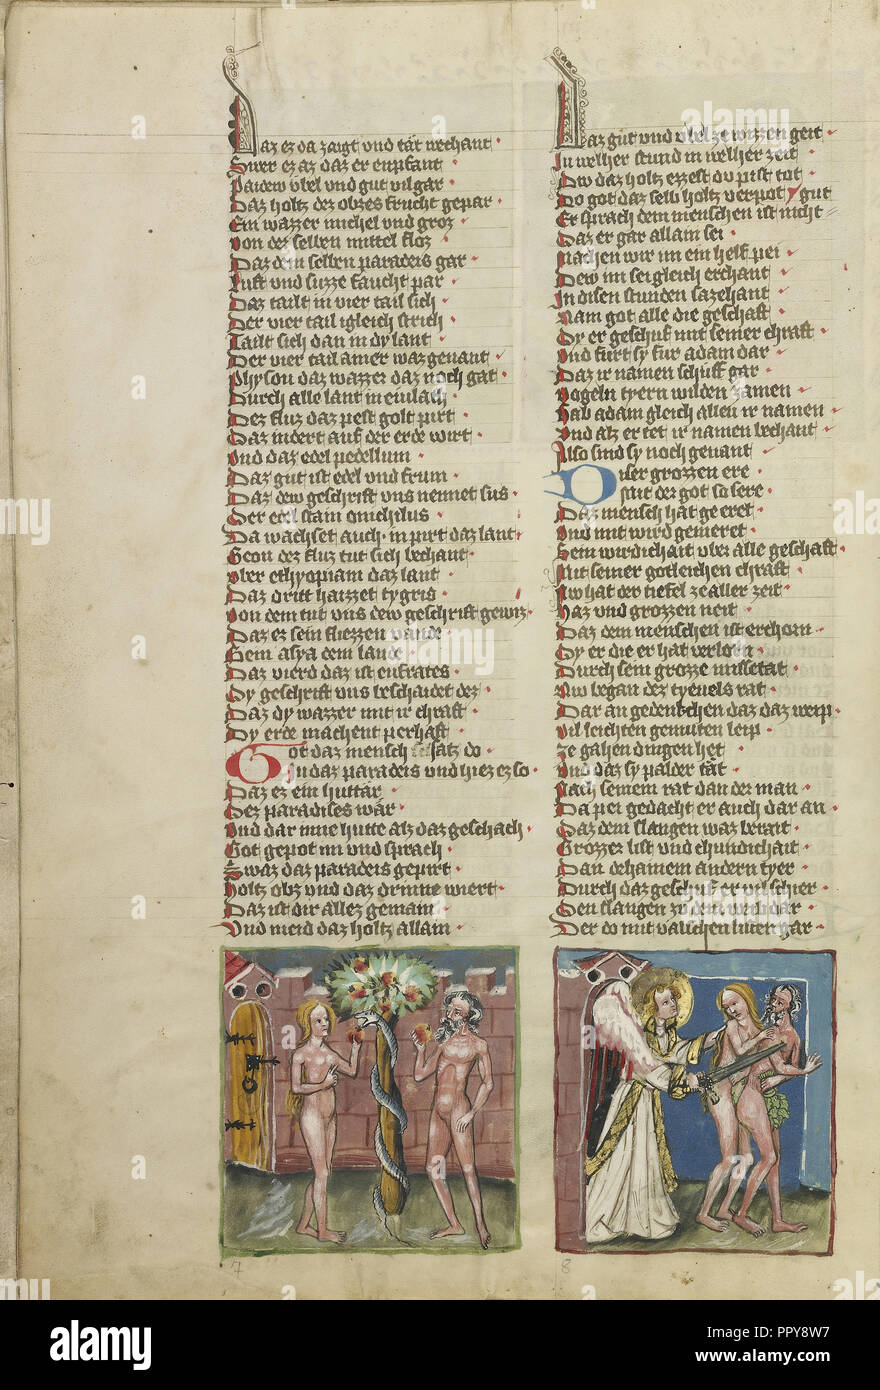 Daz ez da zaigt vnd tăt bechant
Swer ez az daz er enpfant
Paidew vbel vnd gut vil gar
Daz holtz des obzes frucht gepar
Ein wazzer michel vnd groz
Von der selben mittel floz
Daz dem selben paradeis gar
Luft vnd suzze faucht par
Daz tailt in vier tail sich
Der vier tail igleich strich
Tailt sich dan in dy lant
Der vier tail ainer waz genant
Physon daz wazzer daz noch gat
Durch alle lant in eiulach
Dez fluz daz pest golt pirt
Daz indert auf der erde wirt
Vnd daz edel pedellum
Daz gut ist edel vnd frum
Daz dew geschrift vns nennet sus
Der edel stain onichilus
Da wachset auch in pirt daz lant
Geon dez fluz tut sich bechant
Vber ethyopiam daz lant
Daz dritt haizzet tygris
Von dem tut vns dew geschrift gewiz
Daz ez sein fliezzen vande
Gein asya dem lande
Daz vierd daz ist eufrates
Dy geschrift vns beschaidet dez
Daz dy wazzer mit ir chraft
Dy erde machent perhaft
Got daz mensch schatz do
In daz paradeis vnd hiez ez so
Daz ez ein huttăr
Dez paradises wăr
Vnd dar inne hutte alz daz geschach
Got gepot im vnd sprach
Swaz daz paradeis gepirt
Holtz obz vnd daz drinne wiert
Daz ist dir allez gemain
Vnd meid daz holtz allain
Daz gut vnd vbel ze wizzen geit
In welher stund in welher zeit
Dew daz holtz ezzest du pist tot
Do got daz selb holtz verpot
gut
Er sprach dem menschen ist nicht
Daz er gar allain sei
Machen wir im ein helf pei
Dew im sei gleich erchant
In disen stunden sazehant
Nam got alle die geschaft
Dy er geschuf mit seiner chraft
Vnd furt sy fur adam dar
Daz ir namen schuff gar
Vogeln tyern wilden zamen
Gab adam gleich allen ir namen
Vnd alz er tet ir namen bechant
Also sind sy noch genant
Diser grozzen ere
Mit der got so sere
Daz mensch hat geeret
Vnd mit wird gemeret
Sein wirdichait vber alle geschaft
Mit seiner gotleichen chraft
Nw hat der tiefel ze aller zeit
Haz vnd grozzen neit
Daz dem menschen ist erchorn
Dy er die er hat verlorn
Durch sein grozze missetat
Nw began dez tyeuels rat
Dar an gedenkchen daz daz weip
Vil leichten gemuten leip
Ze gahen dingen het
Vnd daz sy palder tăt
Nach seinem rat dan der man
Da pei gedacht er auch dar an
Daz dem slangen waz berait
Grozzer list vnd chundichait
Dan dehainem andern tyer
Durch daz geschuf er vil schier
Den slangen zu dem weib dar
Der do mit valschen luten gar
7
8
alamy
Image ID: PPY8W7
www.alamy.com